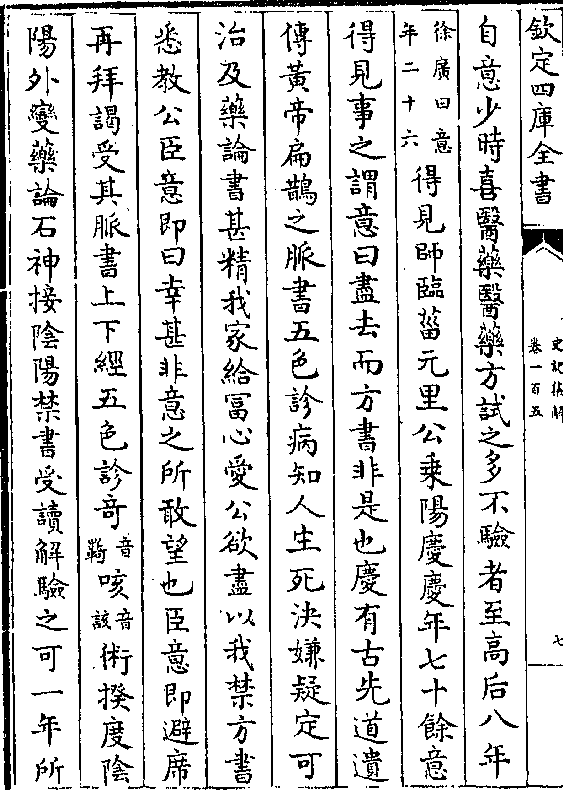 欽定四庫全書
史記集解
卷一百五
七
自意少時喜醫藥醫藥方試之多不驗者至高后八年
徐廣曰意
年二十六
得見師臨菑元里公乗陽慶慶年七十餘意
得見事之謂意曰盡去而方書非是也慶有古先道遺
傳黃帝扁鵲之脈書五色診病知人生死決嫌疑定可
治及藥論書甚精我家給冨心愛公欲盡以我禁方書
悉教公臣意即曰幸甚非意之所敢望也臣意即避席
再拜謁受其脈書上下經五色診竒
音
羇
咳
音
該
術揆度陰
陽外變藥論石神接陰陽禁書受讀解驗之可一年所